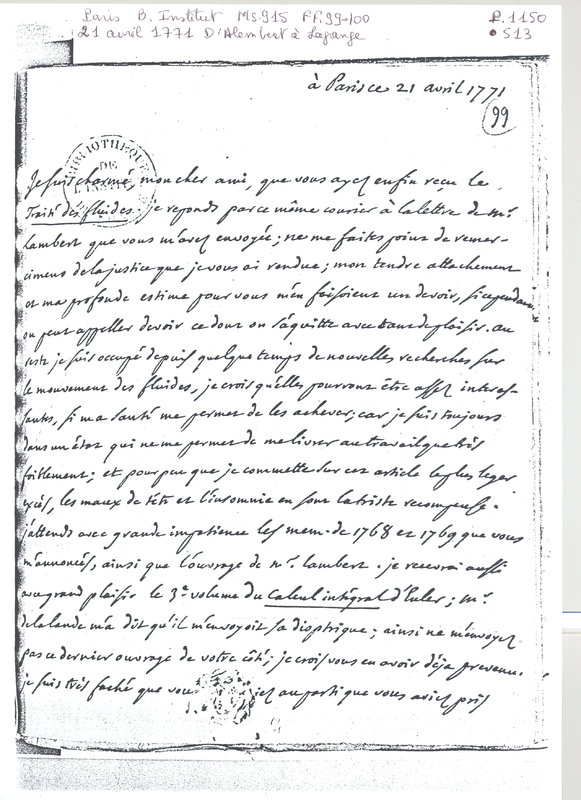 Paris B. Institut MS.915 FF.99-100
P.1150
21 avril 1771 D'Alembert à Lagrange
• 513
à Paris ce 21 avril 1771
99
BIBLIOTHÈQUE
DE
Je suis charmé, mon cher ami, que vous ayez enfin reçu le
Traité des fluides. je reponds par ce même courier à la lettre de Mr.
Lambert que vous m'avez envoyée; ne me faites point de remer-
cimens de la justice que je vous ai rendue; mon tendre attachement
et ma profonde estime pour vous m'en faisoient un devoir, si cependant
on peut appeller devoir ce dont on s'aquitte avec tant de plaisir. au
reste je suis occupé depuis quelque temps de nouvelles recherches sur
le mouvement des fluides, je crois qu'elles pourront être assez interes-
santes, si ma santé me permet de les achever; car je suis toujours
dans un état qui ne me permet de me livrer au travail que très
foiblement; et pour peu que je commette sur cet article le plus leger
excès, les maux de tête et l'insomnie en sont la triste recompense.
j'attends avec grande impatience les mem. de 1768 et 1769 que vous
m'annoncés, ainsi que l'ouvrage de Mr. Lambert. je recevrai aussi
avec grand plaisir le 3e. volume du Calcul intégral d'Euler; Mr.
de la Lande m'a dit qu'il m'envoyoit sa dioptrique; ainsi ne m'envoyez
pas ce dernier ouvrage de votre côté; je crois vous en avoir déja prevenu.
je suis très faché que vous au parti que vous aviez pris